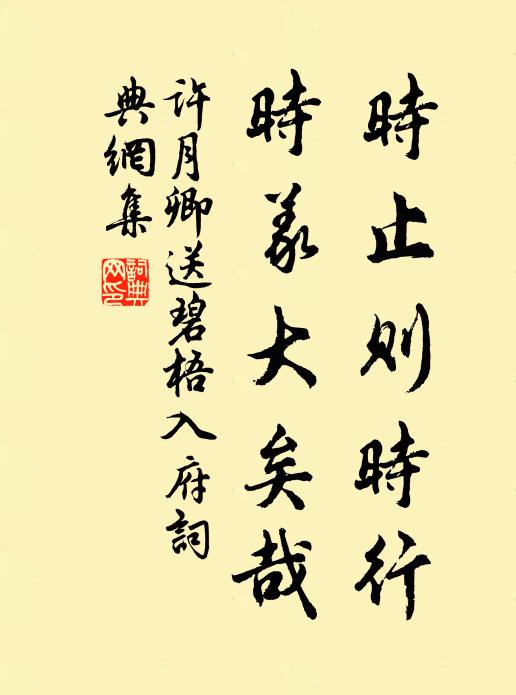 時止則時行
時義大矣哉
許月卿送碧梧入府詞
典網集
詞典
网印